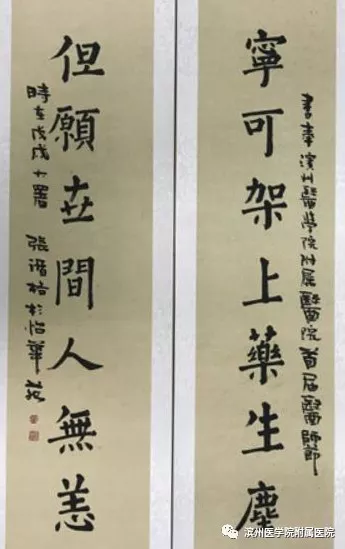 書奉濱州醫學院附屬醫院首屆醫師節
寧可架上藥生塵
但願世間人無恙
時在戊戌大暑 張 於怡華苑
滨州医学院附属医院